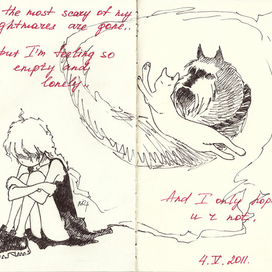 the most scary of my
nightmares are gone..
but I'm feeling so
empty and
lonely..
And I only hope
u r not.
4.V.2011.